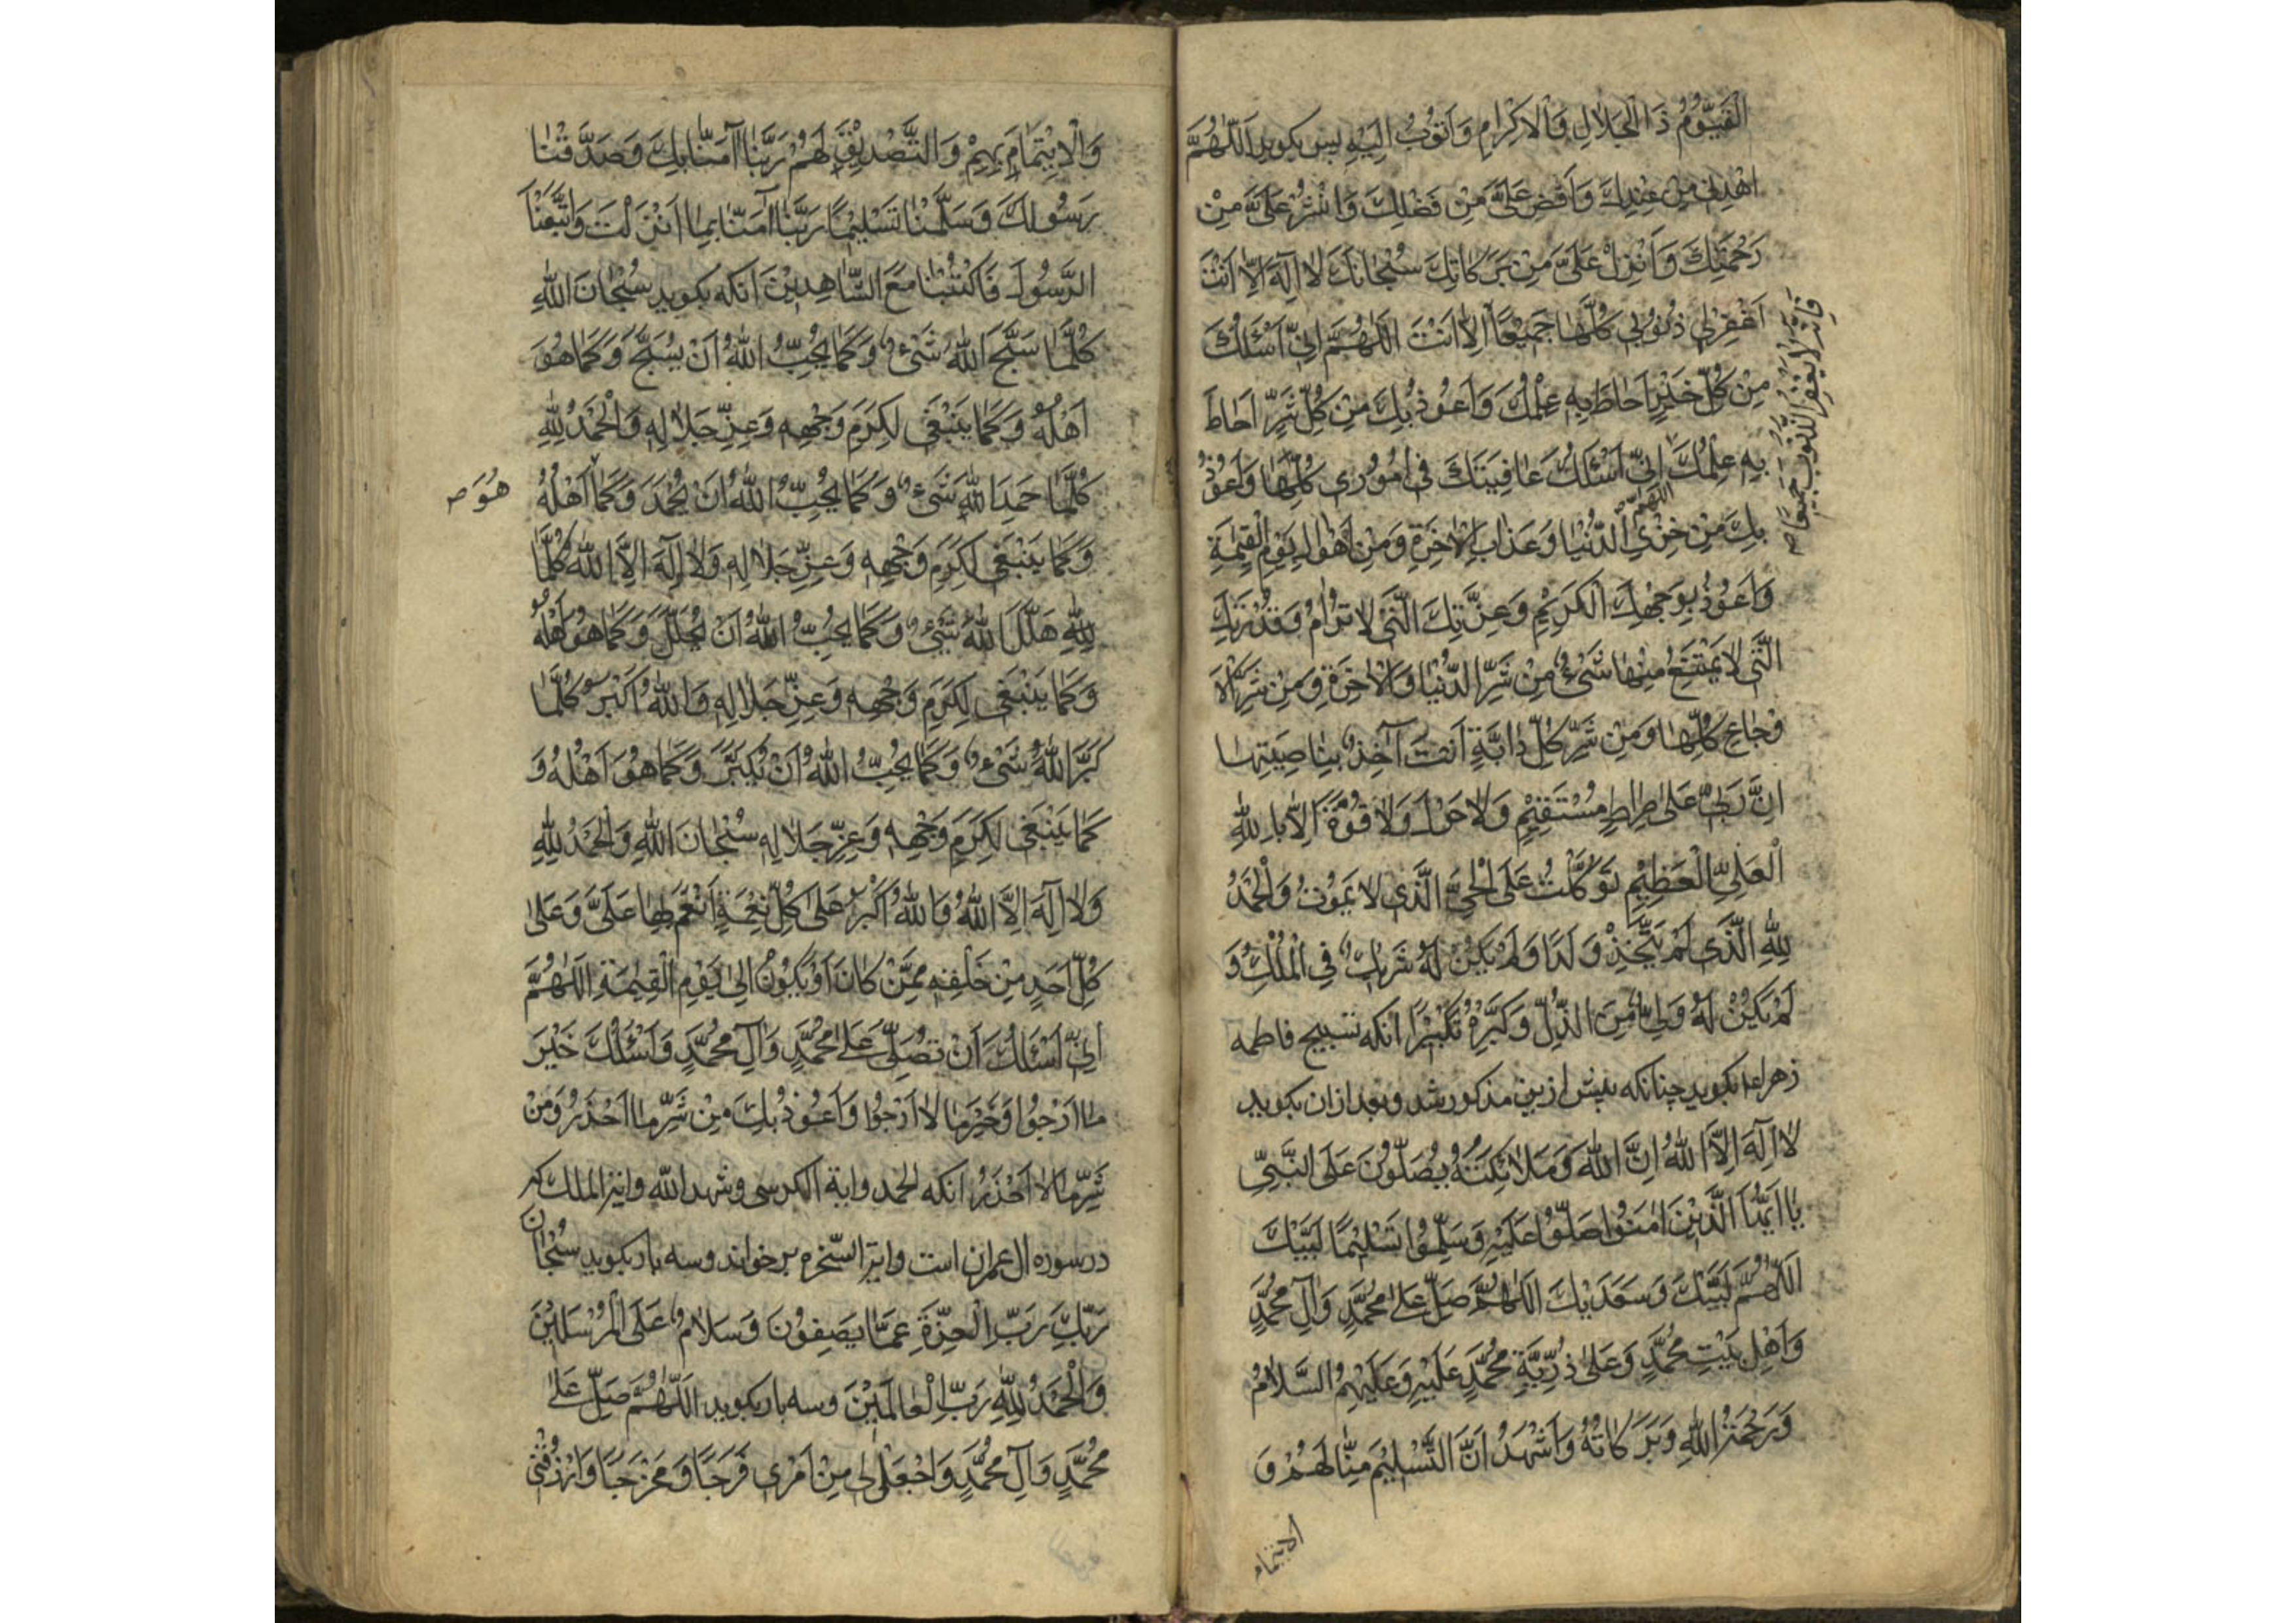 الْقَيُّومُ ذَا الْجَلَالِ وَالْاِكْرَامِ وَاَتُوبُ اِلَيْهِ پس بكويد اَللّٰهُمَّ
اهْدِنِي مِنْ عِنْدِكَ وَاَفِضْ عَلَىَّ مِنْ فَضْلِكَ وَانْشُرْ عَلَىَّ مِنْ
رَحْمَتِكَ وَاَنْزِلْ عَلَىَّ مِنْ بَرَكَاتِكَ سُبْحَانَكَ لَا اِلٰهَ اِلَّا اَنْتَ
اغْفِرْلِي ذُنُوبِي كُلَّهَا جَمِيعًا اِلَّا اَنْتَ اَللّٰهُمَّ اِنِّي اَسْئَلُكَ
فَاِنَّهُ لَا يَغْفِرُ الذُّنُوبَ جَمِيعًا ص
مِنْ كُلِّ خَيْرٍ اَحَاطَ بِهِ عِلْمُكَ وَاَعُوذُ بِكَ مِنْ كُلِّ شَرٍّ اَحَاطَ
بِهِ عِلْمُكَ اِنِّي اَسْئَلُكَ عَافِيَتَكَ فِي اُمُورِي كُلِّهَا وَاَعُوذُ
اللّهمّ
بِكَ مِنْ خِزْيِ الدُّنْيَا وَعَذَابِ الْاٰخِرَةِ وَمِنْ اَهْوَالِ يَوْمِ الْقِيٰمَةِ
وَاَعُوذُ بِوَجْهِكَ الْكَرِيمِ وَعِزَّتِكَ الَّتِي لَا تُرَامُ وَقُدْرَتِكَ
الَّتِي لَا يَمْتَنِعُ مِنْهَا شَيْءٌ مِنْ شَرِّ الدُّنْيَا وَالْاٰخِرَةِ وَمِنْ شَرِّ الْاَ
وْجَاعِ كُلِّهَا وَمِنْ شَرِّ كُلِّ دَابَّةٍ اَنْتَ آخِذٌ بِنَاصِيَتِهَا
اِنَّ رَبِّي عَلٰى صِرَاطٍ مُسْتَقِيْمٍ وَلَا حَوْلَ وَلَا قُوَّةَ اِلَّا بِاللّٰهِ
الْعَلِيِّ الْعَظِيْمِ تَوَكَّلْتُ عَلَى الْحَيِّ الَّذِي لَا يَمُوتُ وَالْحَمْدُ
لِلّٰهِ الَّذِي لَمْ يَتَّخِذْ وَلَدًا وَلَمْ يَكُنْ لَهُ شَرِيكٌ فِي الْمُلْكِ وَ
لَمْ يَكُنْ لَهُ وَلِيٌّ مِنَ الذُّلِّ وَكَبِّرْهُ تَكْبِيْرًا آنكه تسبيح فاطمه
زهرا ع بكويد چنانكه پيش ازين مذكور شد وبعد ازان بكويد
لَا اِلٰهَ اِلَّا اللّٰهُ اِنَّ اللّٰهَ وَمَلَائِكَتَهُ يُصَلُّونَ عَلَى النَّبِيِّ
يَا اَيُّهَا الَّذِيْنَ اٰمَنُوا صَلُّوا عَلَيْهِ وَسَلِّمُوا تَسْلِيْمًا لَبَّيْكَ
اَللّٰهُمَّ لَبَّيْكَ وَسَعْدَيْكَ اَللّٰهُمَّ صَلِّ عَلٰى مُحَمَّدٍ وَآلِ مُحَمَّدٍ
وَاَهْلِ بَيْتِ مُحَمَّدٍ وَعَلٰى ذُرِّيَّةِ مُحَمَّدٍ عَلَيْهِ وَعَلَيْهِمُ السَّلَامُ
وَرَحْمَةُ اللّٰهِ وَبَرَكَاتُهُ وَاَشْهَدُ اَنَّ التَّسْلِيْمَ مِنَّا لَهُمْ وَ
الايتمام
وَالْاِيْتِمَامَ بِهِمْ وَالتَّصْدِيْقَ لَهُمْ رَبَّنَا آمَنَّا بِكَ وَصَدَّقْنَا
رَسُولَكَ وَسَلَّمْنَا تَسْلِيْمًا رَبَّنَا آمَنَّا بِمَا اَنْزَلْتَ وَاتَّبَعْنَا
الرَّسُولَ فَاكْتُبْنَا مَعَ الشَّاهِدِيْنَ آنكه بكويد سُبْحَانَ اللّٰهِ
كُلَّمَا سَبَّحَ اللّٰهَ شَيْءٌ وَكَمَا يُحِبُّ اللّٰهُ اَنْ يُسَبَّحَ وَكَمَا هُوَ
اَهْلُهُ وَكَمَا يَنْبَغِي لِكَرَمِ وَجْهِهِ وَعِزِّ جَلَالِهِ وَالْحَمْدُ لِلّٰهِ
كُلَّمَا حَمِدَ اللّٰهَ شَيْءٌ وَكَمَا يُحِبُّ اللّٰهُ اَنْ يُحْمَدَ وَكَمَا اَهْلُهُ
هُوَ ص
وَكَمَا يَنْبَغِي لِكَرَمِ وَجْهِهِ وَعِزِّ جَلَالِهِ وَلَا اِلٰهَ اِلَّا اللّٰهُ كُلَّمَا
لِلّٰهِ هَلَّلَ اللّٰهَ شَيْءٌ وَكَمَا يُحِبُّ اللّٰهُ اَنْ يُهَلَّلَ وَكَمَا هُوَ اَهْلُهُ
وَكَمَا يَنْبَغِي لِكَرَمِ وَجْهِهِ وَعِزِّ جَلَالِهِ وَاللّٰهُ اَكْبَرُ كُلَّمَا
كَبَّرَ اللّٰهَ شَيْءٌ وَكَمَا يُحِبُّ اللّٰهُ اَنْ يُكَبَّرَ وَكَمَا هُوَ اَهْلُهُ وَ
كَمَا يَنْبَغِي لِكَرَمِ وَجْهِهِ وَعِزِّ جَلَالِهِ سُبْحَانَ اللّٰهِ وَالْحَمْدُ لِلّٰهِ
وَلَا اِلٰهَ اِلَّا اللّٰهُ وَاللّٰهُ اَكْبَرُ عَلٰى كُلِّ نِعْمَةٍ اَنْعَمَ بِهَا عَلَىَّ وَعَلٰى
كُلِّ اَحَدٍ مِنْ خَلْقِهِ مِمَّنْ كَانَ اَوْ يَكُونُ اِلٰى يَوْمِ الْقِيٰمَةِ اَللّٰهُمَّ
اِنِّي اَسْئَلُكَ اَنْ تُصَلِّيَ عَلٰى مُحَمَّدٍ وَآلِ مُحَمَّدٍ وَاَسْئَلُكَ خَيْرَ
مَا اَرْجُوا وَخَيْرَ مَا لَا اَرْجُوا وَاَعُوذُ بِكَ مِنْ شَرِّ مَا اَحْذَرُ وَمِنْ
شَرِّ مَا لَا اَحْذَرُ آنكه الحمد واية الكرسى وشهد الله واية الملك كه
در سوره ال عمران است واية السّخره بر خواند وسه بار بكويد سُبْحَانَ
رَبِّكَ رَبِّ الْعِزَّةِ عَمَّا يَصِفُونَ وَسَلَامٌ عَلَى الْمُرْسَلِيْنَ
وَالْحَمْدُ لِلّٰهِ رَبِّ الْعَالَمِيْنَ وسه بار بكويد اَللّٰهُمَّ صَلِّ عَلٰى
مُحَمَّدٍ وَآلِ مُحَمَّدٍ وَاجْعَلْ لِي مِنْ اَمْرِي فَرَجًا وَمَخْرَجًا وَارْزُقْنِي